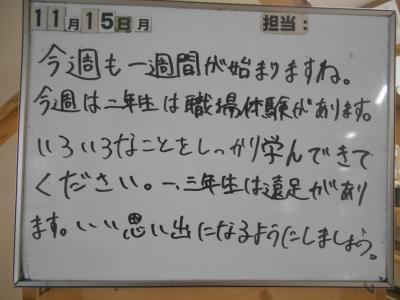 11月15日月 担当:
今週も一週間が始まりますね。
今週は二年生は職場体験があります。
いろいろなことをしっかり学んできて
ください。一、三年生は遠足があり
ます。いい思い出になるようにしましょう。